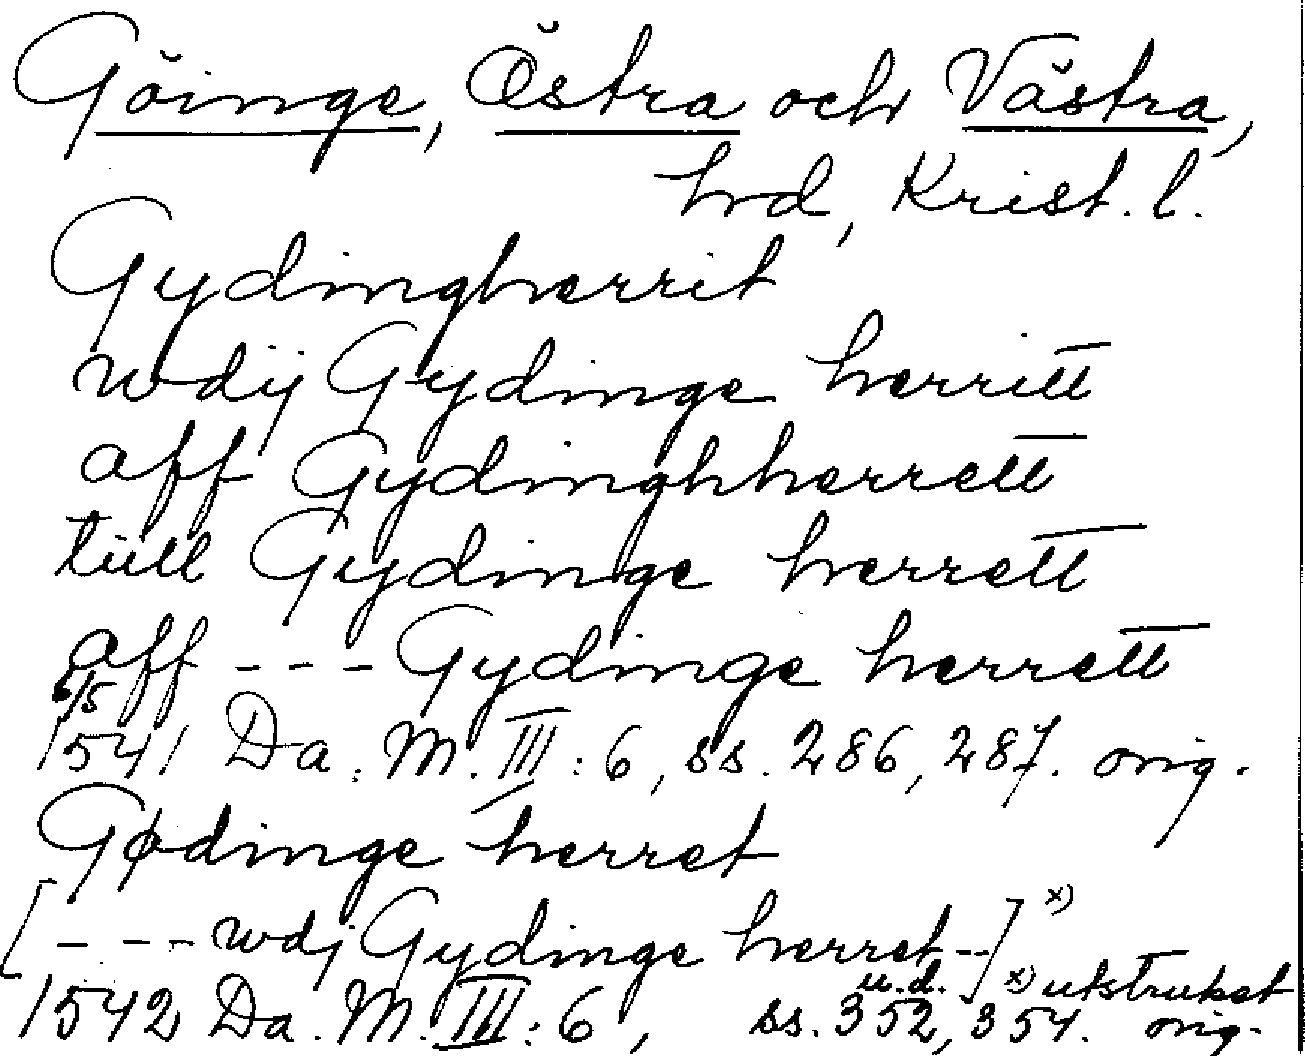 Göinge, Östra och Västra,
hd, Krist. l.
Gydingherrit
wdij Gydinge herritt
aff Gydinghherrett
tiill Gydinge herrett
aff - - - Gydinge herrett
6/5
1541 Da. M. III: 6, ss. 286, 287. orig.
Gødinge herret
[- - - wdj Gydinge herret --] x)
u.d. x) utstruket
1542 Da. M. III: 6, ss. 352, 354. orig.